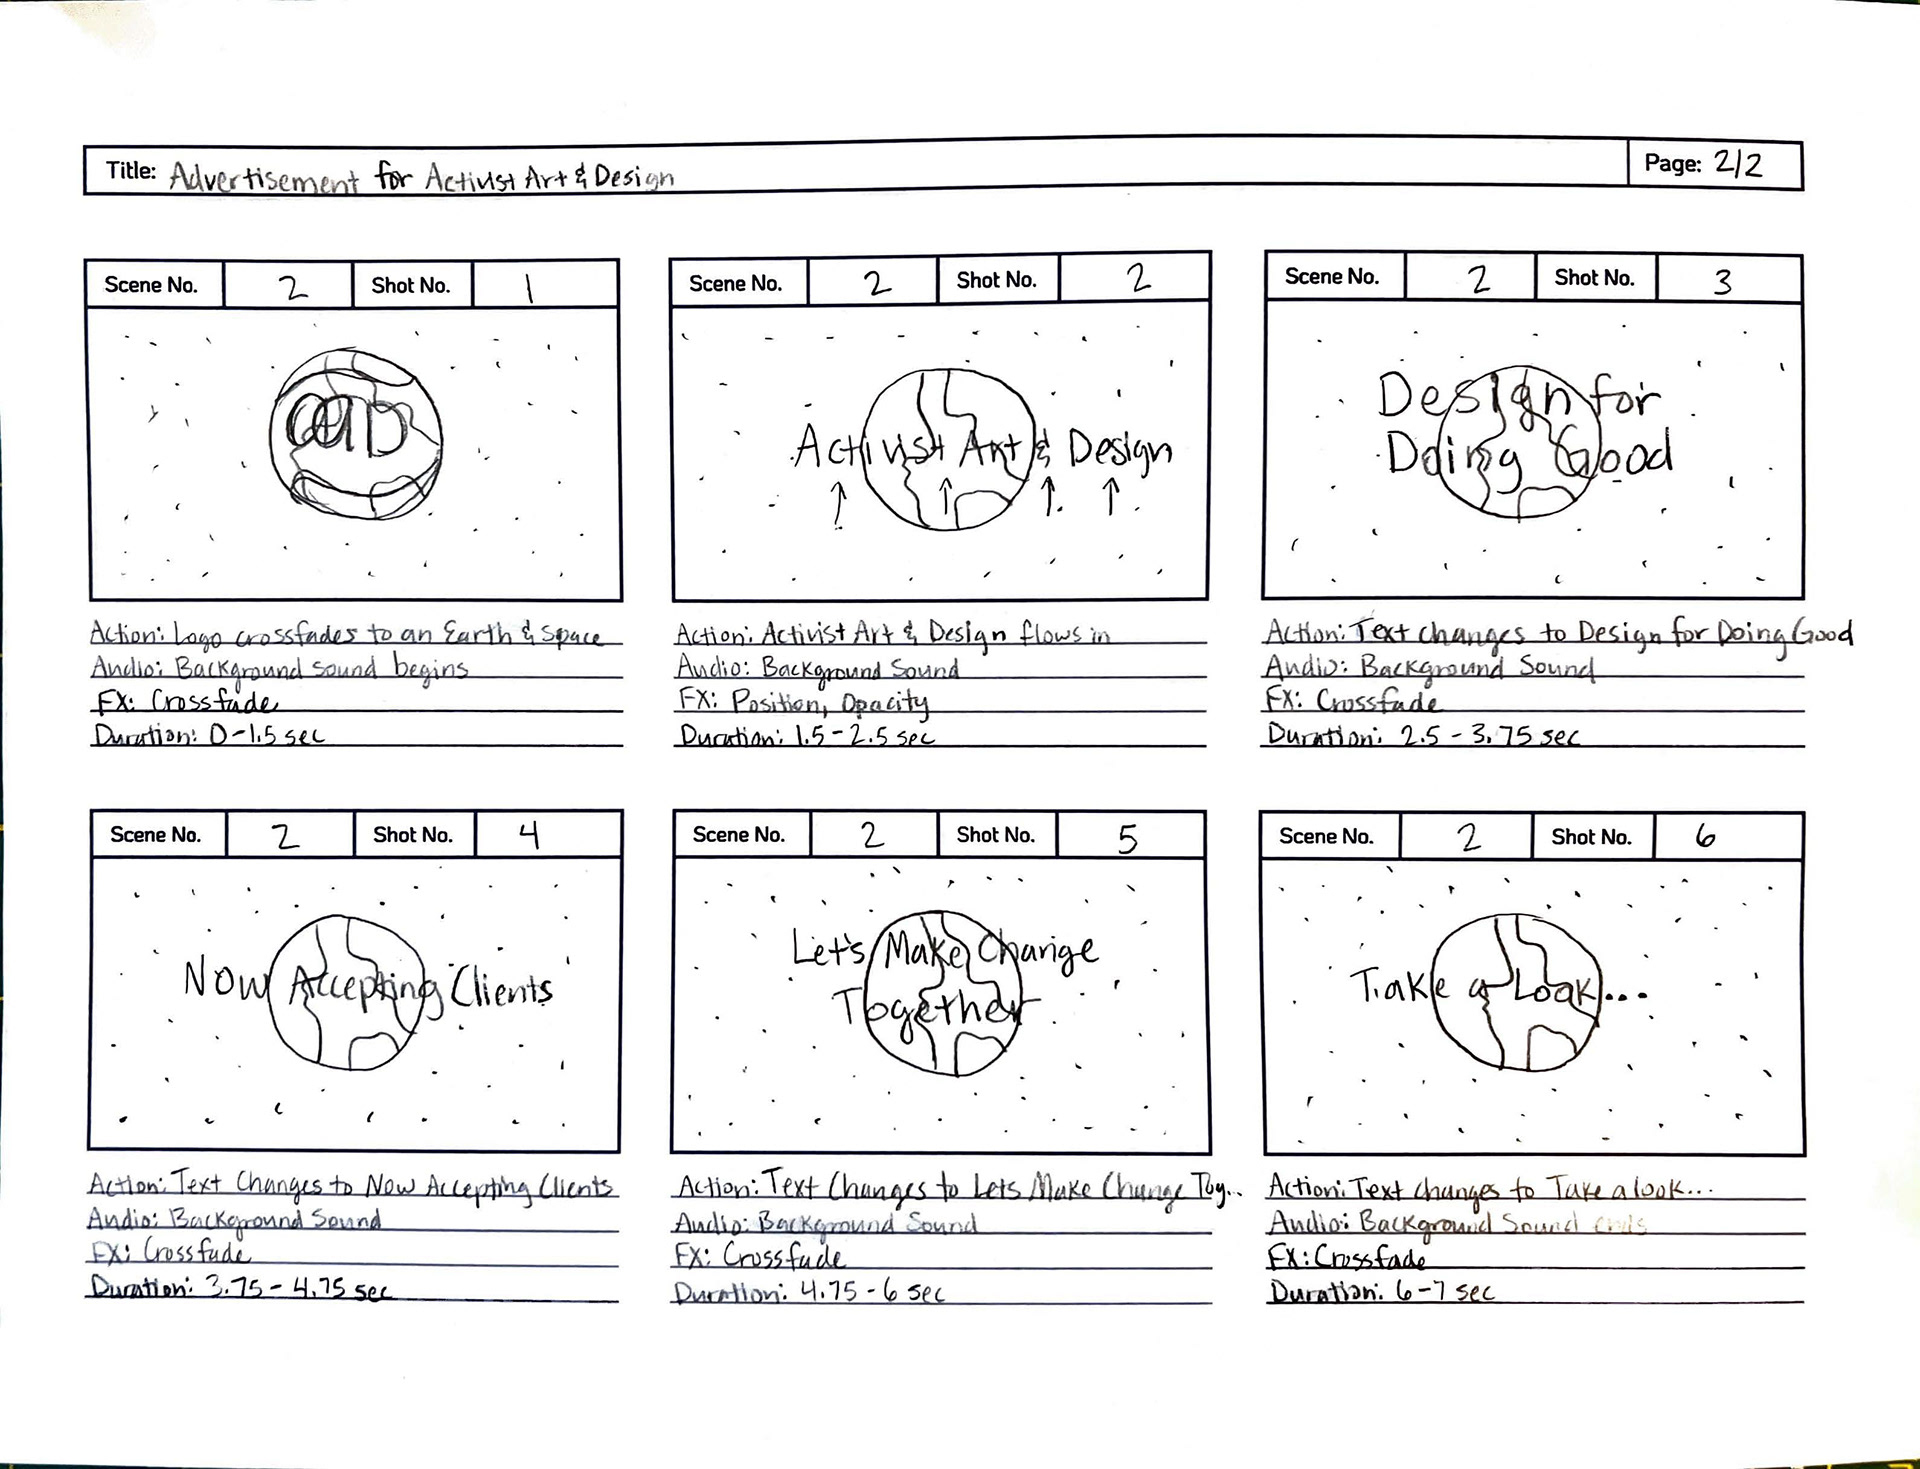 Title: Advertisement for Activist Art & Design
Page: 2/2
Scene No. 2 Shot No. 1
Action: Logo crossfades to an Earth & Space
Audio: Background sound begins
FX: Crossfade
Duration: 0-1.5 sec
Scene No. 2 Shot No. 2
Activist Art & Design
Action: Activist Art & Design flows in
Audio: Background Sound
FX: Position, Opacity
Duration: 1.5-2.5 sec
Scene No. 2 Shot No. 3
Design for
Doing Good
Action: Text changes to Design for Doing Good
Audio: Background Sound
FX: Crossfade
Duration: 2.5 - 3.75 sec
Scene No. 2 Shot No. 4
Now Accepting Clients
Action: Text Changes to Now Accepting Clients
Audio: Background Sound
FX: Crossfade
Duration: 3.75 - 4.75 sec
Scene No. 2 Shot No. 5
Let's Make Change
Together
Action: Text Changes to Lets Make Change Tog...
Audio: Background Sound
FX: Crossfade
Duration: 4.75 - 6 sec
Scene No. 2 Shot No. 6
Take a Look...
Action: Text changes to Take a look...
Audio: Background Sound ends
FX: Crossfade
Duration: 6-7 sec